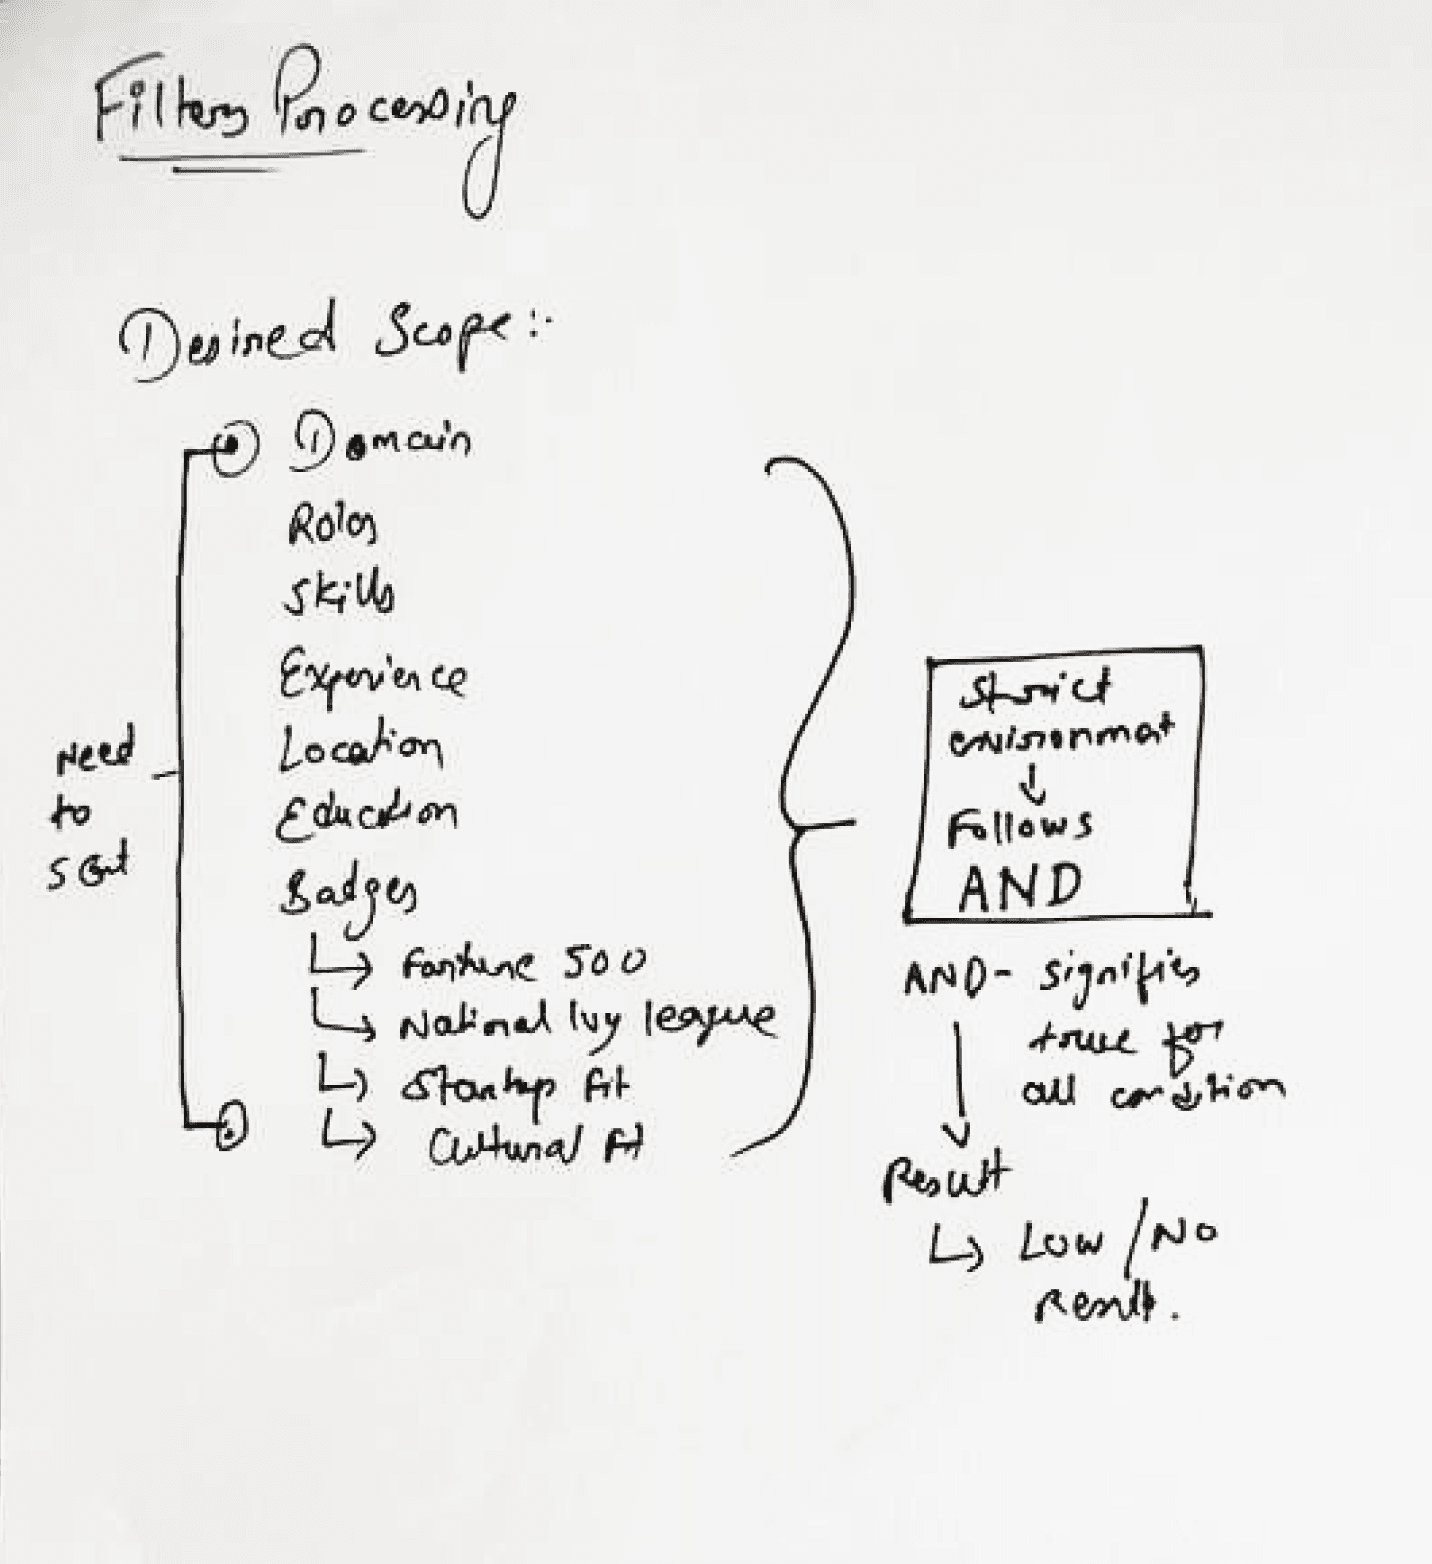 Filters Processing
Desired Scope :-
Domain
Roles
Skills
Experience
Location
Education
Badges
↳ Fortune 500
↳ National Ivy league
↳ Startup fit
↳ Cultural fit
Need
to
Strict
environment
↓
Follows
AND
AND - signifies
true for
all condition
↓
Result
↳ Low / No
Result.